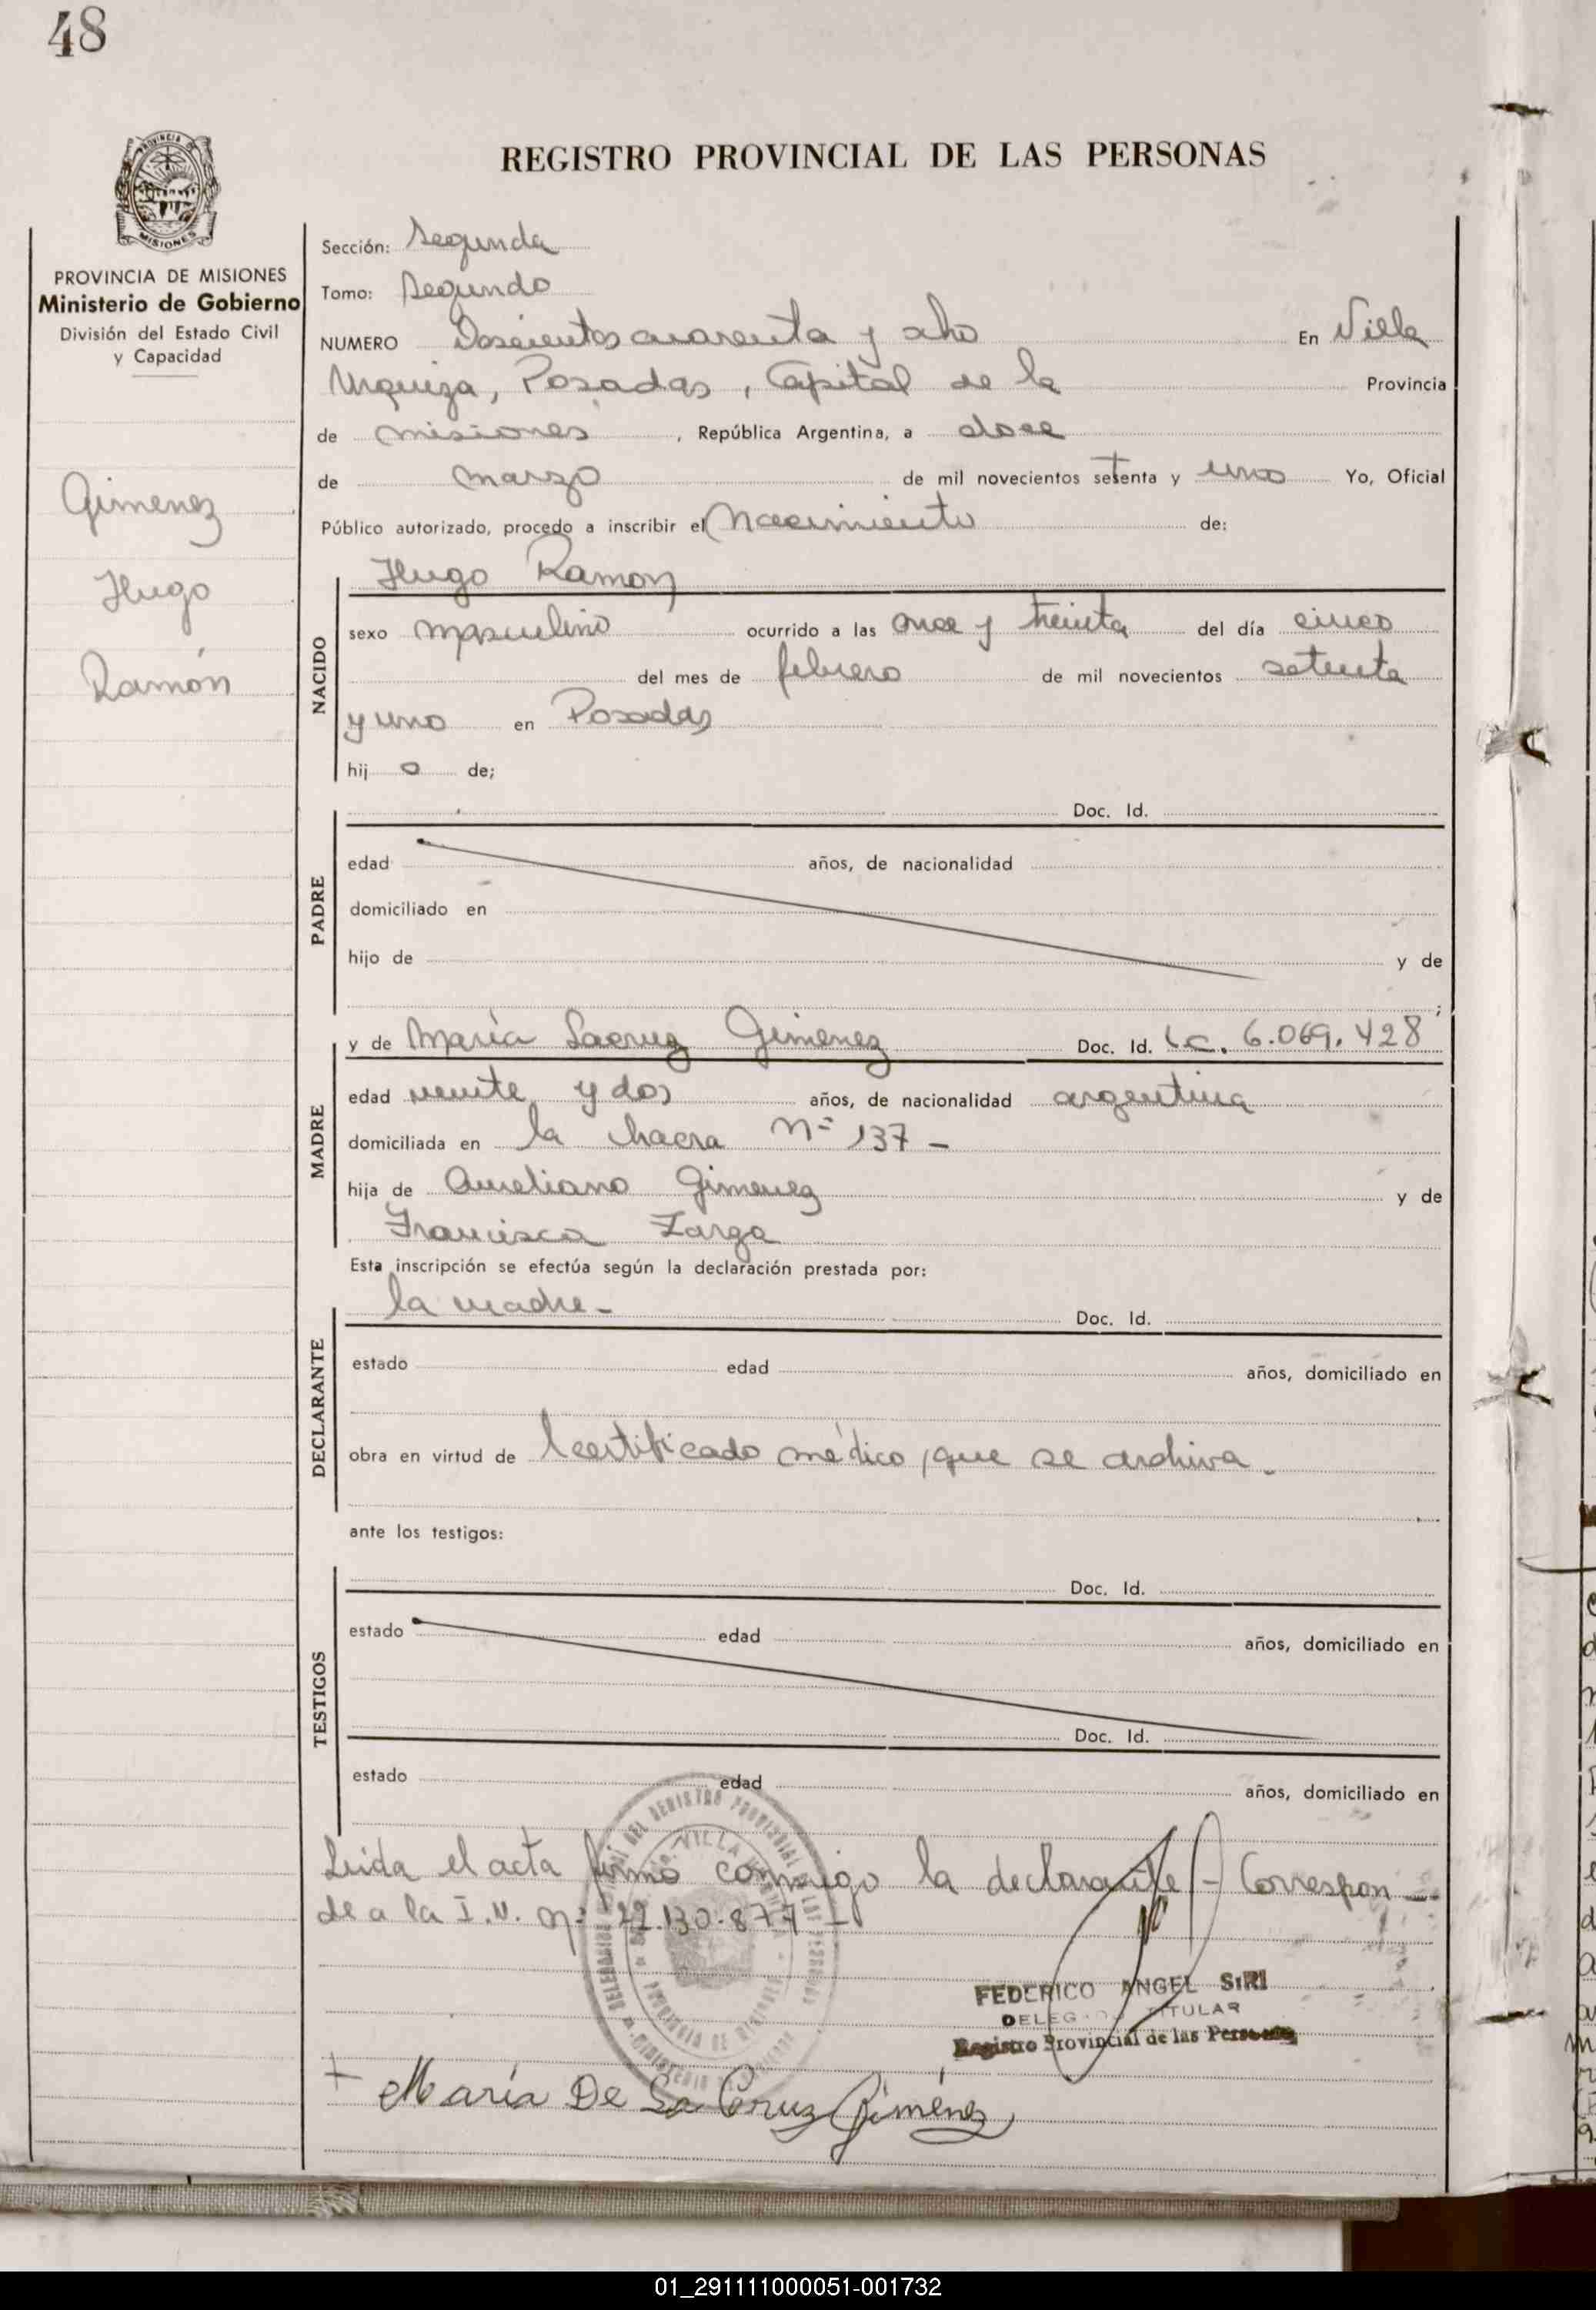 48
REGISTRO PROVINCIAL DE LAS PERSONAS
PROVINCIA
MISIONES
PROVINCIA DE MISIONES
Ministerio de Gobierno
División del Estado Civil
y Capacidad
Gimenez
Hugo
Ramón
Sección: Segunda
Tomo: Segundo
NUMERO Doscientos cuarenta y ocho En Villa
Urquiza, Posadas, Capital de la Provincia
de misiones, República Argentina, a doce
de marzo de mil novecientos setenta y uno Yo, Oficial
Público autorizado, procedo a inscribir el Nacimiento de:
Hugo Ramon
NACIDO
sexo masculino ocurrido a las once y treinta del día cinco
del mes de febrero de mil novecientos setenta
y uno en Posadas
hij o de;
Doc. Id.
PADRE
edad años, de nacionalidad
domiciliado en
hijo de y de
;
MADRE
y de María Lacruz Gimenez Doc. Id. L.C. 6.069.428
edad veinte y dos años, de nacionalidad argentina
domiciliada en la chacra Nº 137 -
hija de Aureliano Gimenez y de
Francisca Zarga
Esta inscripción se efectúa según la declaración prestada por:
la madre - Doc. Id.
DECLARANTE
estado edad años, domiciliado en
obra en virtud de certificado médico, que se archiva.
ante los testigos:
Doc. Id.
TESTIGOS
estado edad años, domiciliado en
Doc. Id.
estado edad años, domiciliado en
Leida el acta firma conmigo la declarante - Correspon-
de a la I.N. nº 22.130.877 -
FEDERICO ANGEL SIRI
TITULAR
Registro Provincial de las Personas
María De La Cruz Giménez
01_291111000051-001732